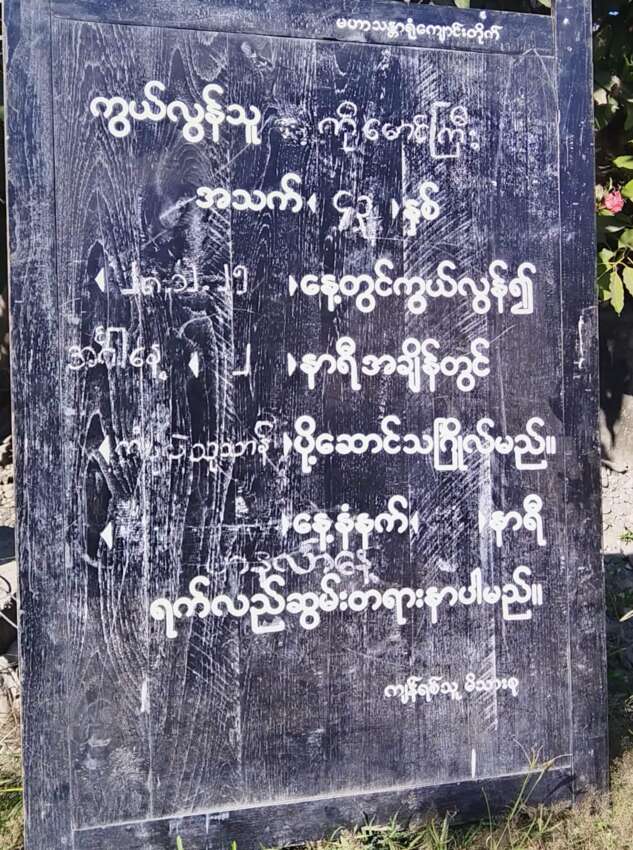 မဟာသန္တာရုံကျောင်းတိုက်
ကွယ်လွန်သူ ကိုမောင်ကြီး
အသက်( ၄၃ )နှစ်
( ၂၈.၁၂.၂၅ )နေ့တွင်ကွယ်လွန်၍
အင်္ဂါနေ့ ( ၂ )နာရီအချိန်တွင်
( သုသာန် )ပို့ဆောင်သဂြိုလ်မည်။
( )နေ့နံနက်( )နာရီ
ရက်လည်ဆွမ်းတရားနာပါမည်။
ကျန်ရစ်သူ မိသားစု